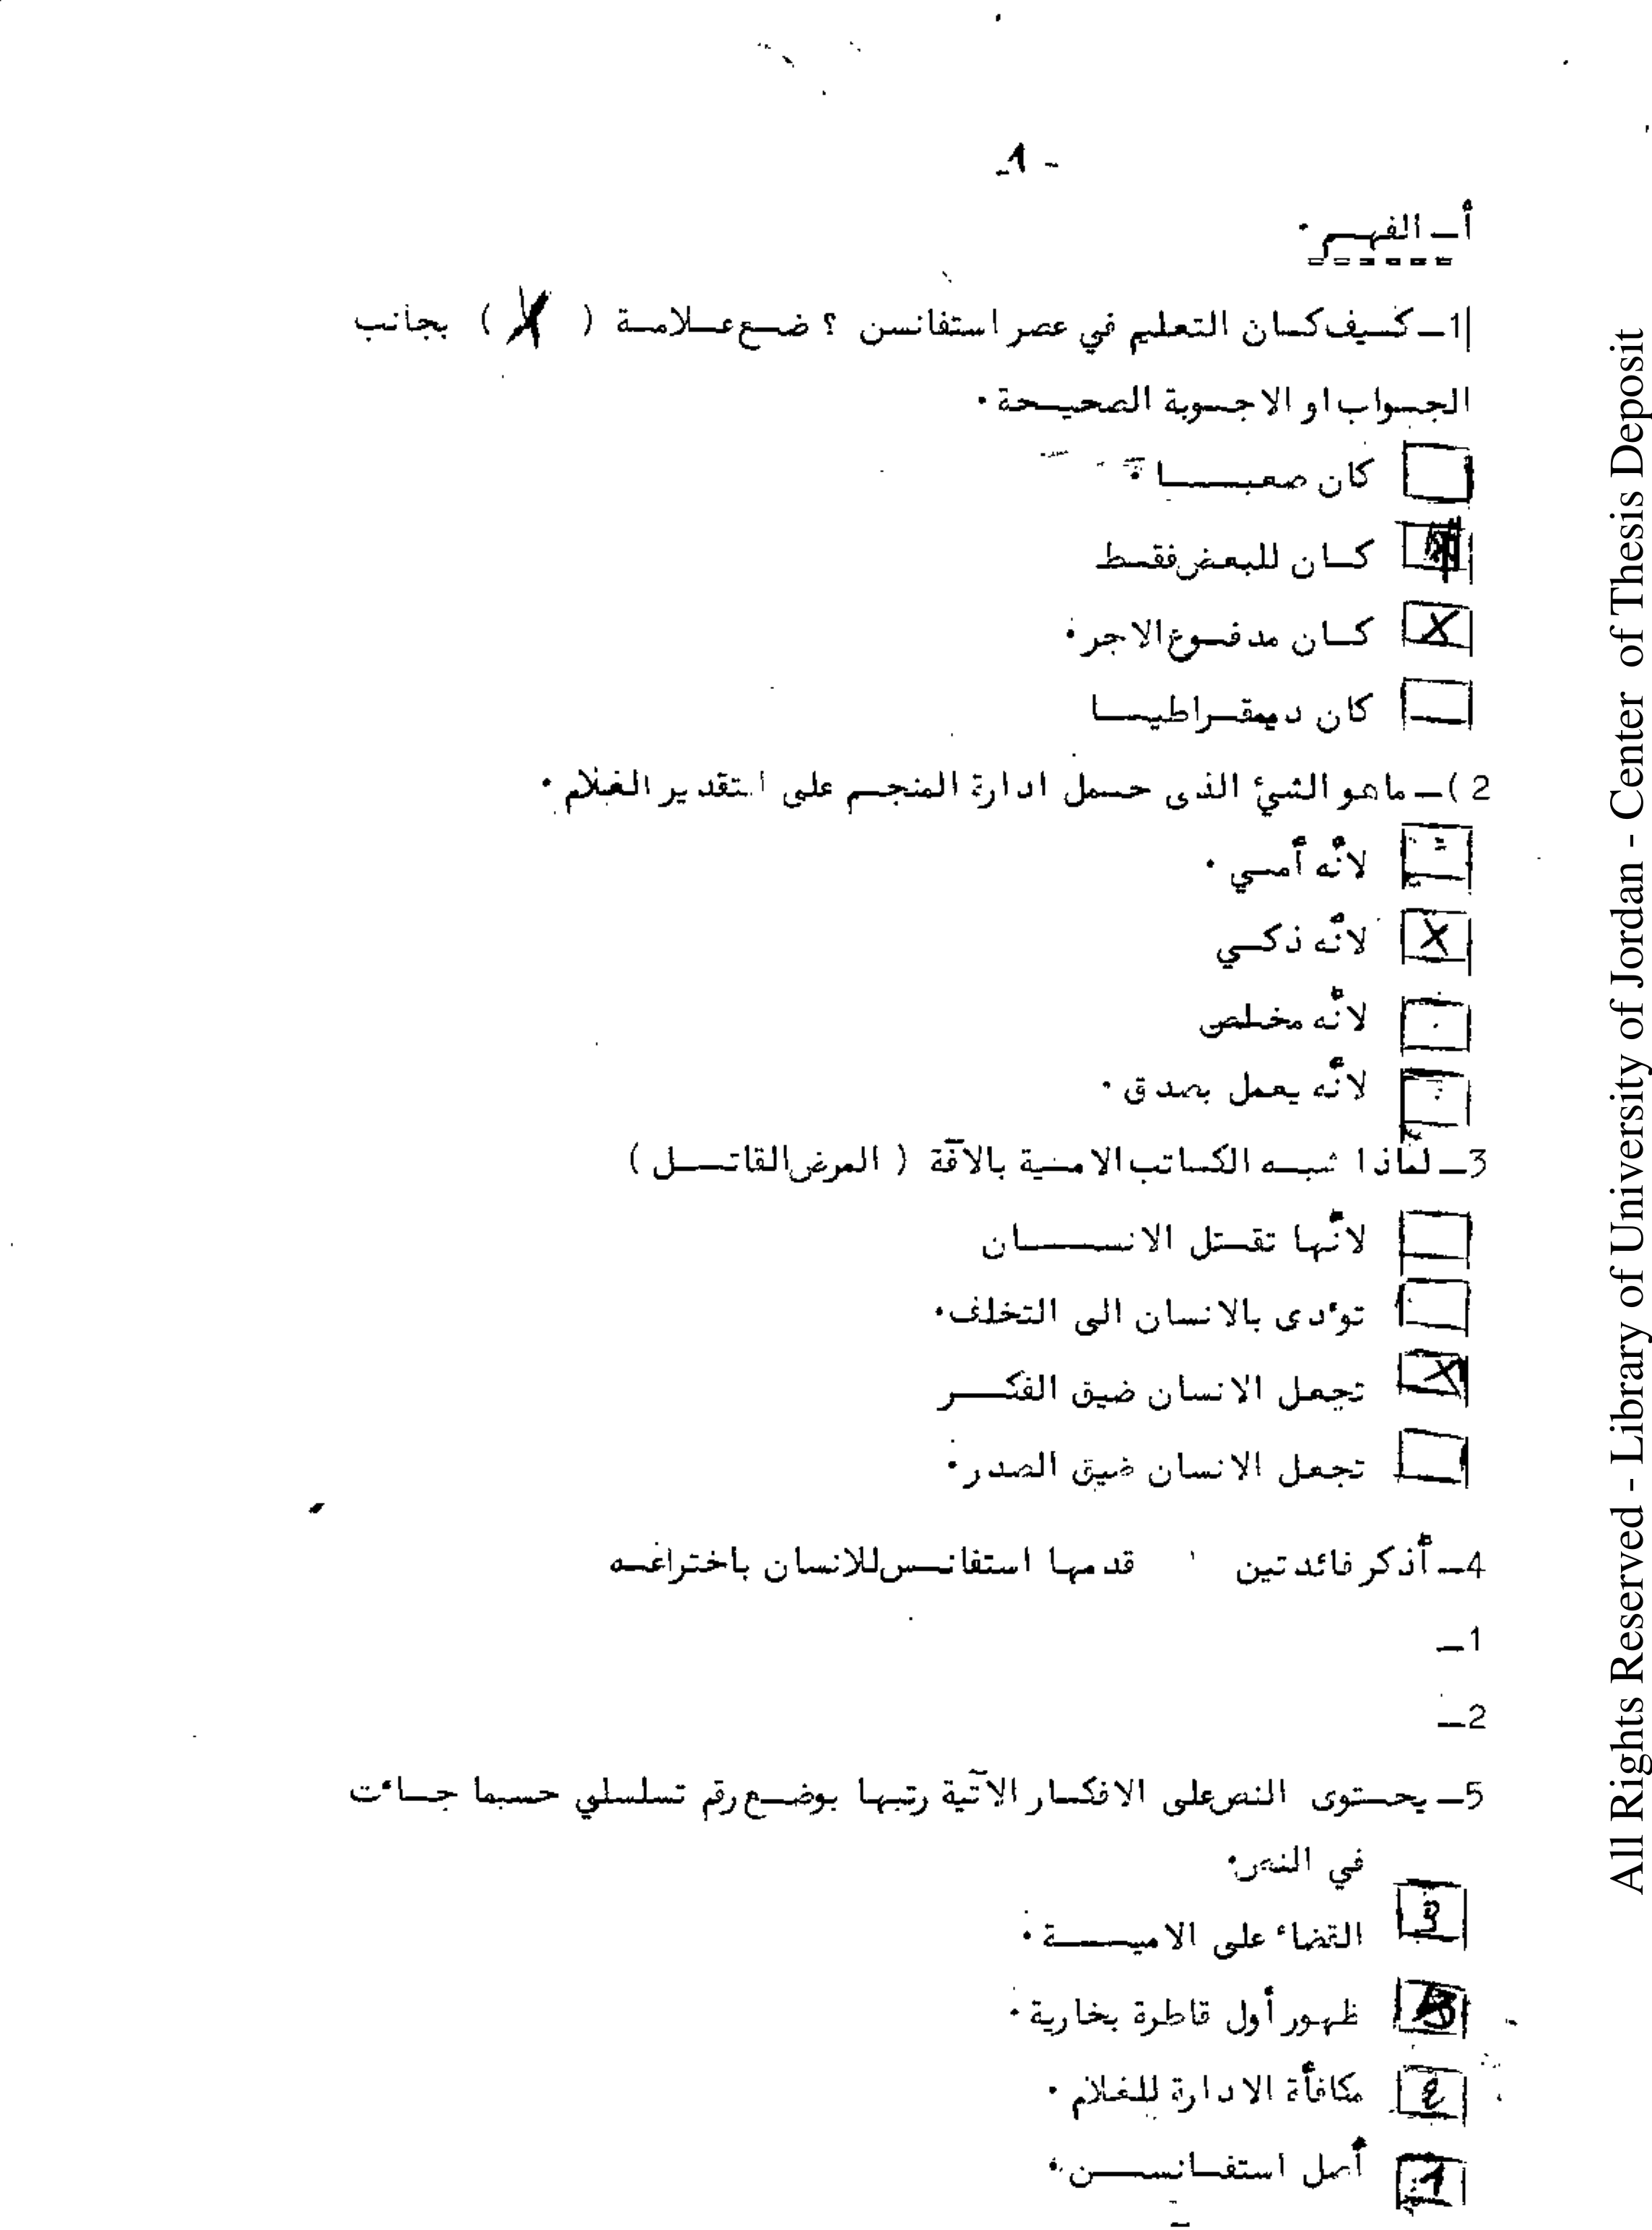 - 1 -
أ ـ الفهم .
1 ـ كيف كان التعليم في عصر استفانسن ؟ ضع علامة ( X ) بجانب
الجواب او الاجوبة الصحيحة .
كان صعبا .
كان للبعض فقط
X كان مدفوع الاجر .
كان ديمقراطيا
2 ) ـ ماهو الشيئ الذى حمل ادارة المنجم على انتقدير الغلام .
لأنه أمي .
X لأنه ذكي
لأنه مخلص
لأنه يعمل بصدق .
3 ـ لماذا شبه الكاتب الامية بالآفة ( المرض القاتل )
لأنها تقتل الانسان
تؤدى بالانسان الى التخلف .
X تجعل الانسان ضيق الفكر
تجعل الانسان ضيق الصدر .
4 ـ أذكر فائدتين قدمها استفانس للانسان باختراعه
1 ـ
2 ـ
5 ـ يحتوى النص على الافكار الآتية رتبها بوضع رقم تسلسلي حسبما جاءت
في النص .
القضاء على الامية .
ظهور أول قاطرة بخارية .
2 مكافأة الادارة للغلام .
1 أصل استفانسن .
All Rights Reserved - Library of University of Jordan - Center of Thesis Deposit